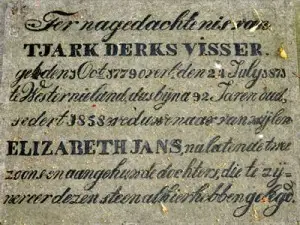 Ter nagedachtenis van
TJARK DERKS VISSER.
geb: den 5 Oct. 1779 overl: den 24 July 1873
te Westernieland, dus bijna 92 Jaren oud,
sedert 1858 weduwenaar van wijlen
ELIZABETH JANS, nalatende twee
zoons en aangehuwde dochters, die te zij-
ner eer dezen steen alhier hebben gelegd.